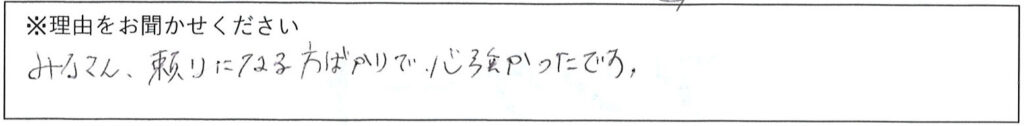 ※理由をお聞かせください
みなさん、頼りになる方ばかりで、心強かったです。